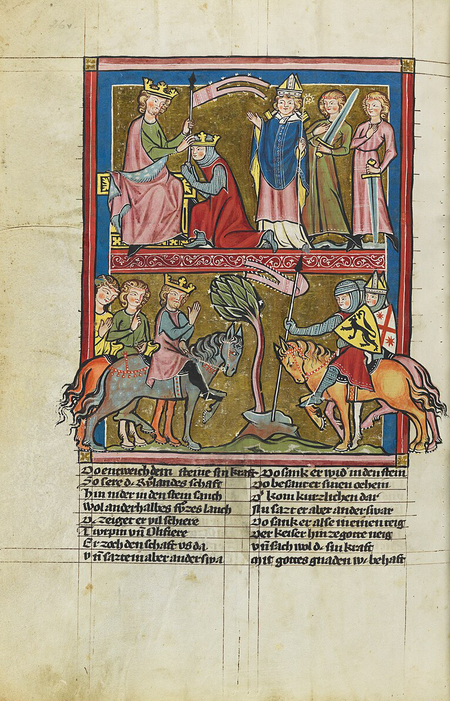 Do entweich dem steine sin kraft
So sere d' Rvͦlandes schaft
Hin nider in den stein sauch
Wol anderhalbes spizes lauch
Dz zeiget er vil schiere
Turpin vn̄ Olifiere
Er zoch den schaft vs da
Vn̄ sazte in aber anderswa
Do sank er wid' in den stein
Do besant er sinen oehein
D' kom kurzlichen dar
Nu sazt er aber anderswar
Do sank er alse in einen teig
Der keiser hin ze gotte neig
Vn̄ sach wol dz sin kraft
Mit gottes gnaden wz behaft